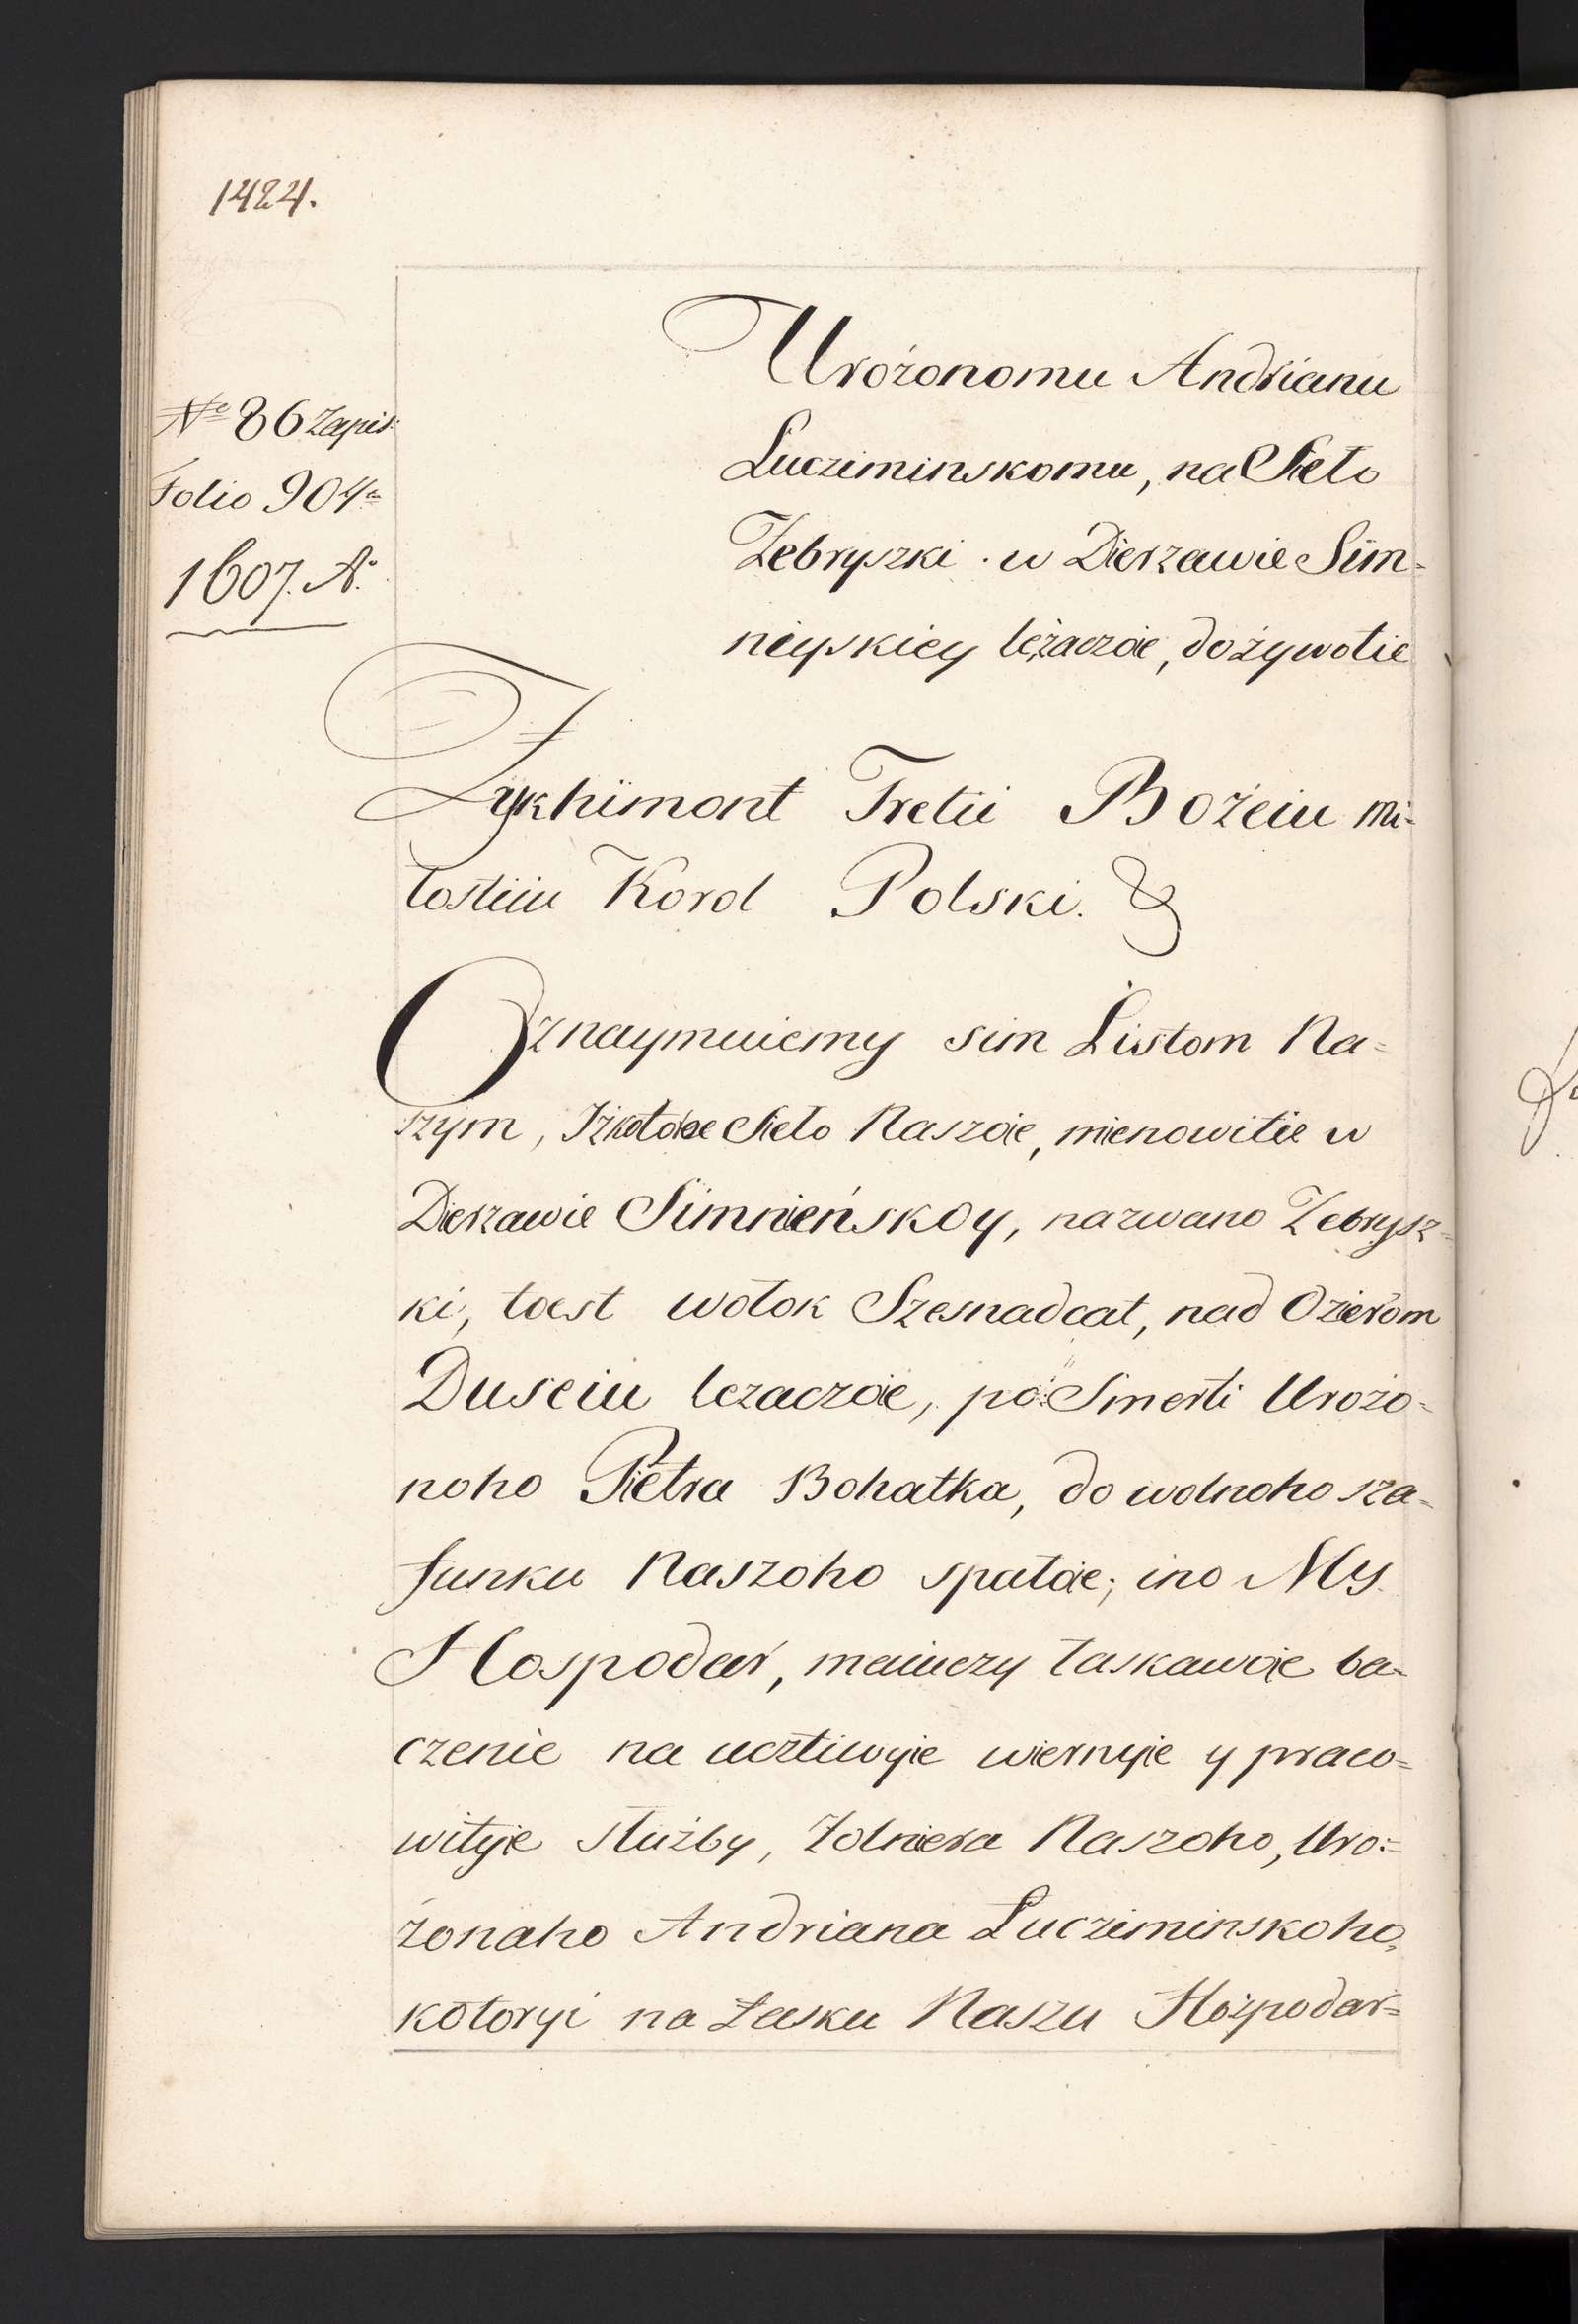 1424.
Nº 86 Zapis:
Folio 904ta
1607. Aº
Urożonomu Andrianu
Lucziminskomu, na Sieło
Żebryszki w Dierzawie Sim=
niyskiey leżaczoie, dożywotie
Zykhimont Tretii Bożeiu mi=
łostiiu Korol Polski. &
Oznaymuiemy sim Listom Na=
szym, Iż kotoroe Sieło Naszoie, mienowitie w
Dierzawie Simnieńskoy, nazwano Żebrysz=
ki, toest wołok Szesnadcat, nad Ozierom
Duseiu lezaczoie, po Smerti Urożo=
noho Pietra Bohatka, do wolnoho sza=
funku Naszoho spałoie; ino My
Hospodar, maiuczy łaskawoie ba=
czenie na ucztiwyie wiernyie y praco=
wityie służby, Żołniera Naszoho, Uro=
żonaho Andriana Lucziminskoho,
kotoryi na Łasku Naszu Hospodar=